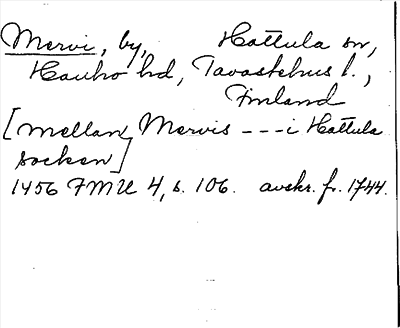 Mervi, by, Hattula sn,
Hauho hd, Tavastehus l.,
Finland
[mellan Mervis --- i Hattula
socken]
1456 FMU 4, s. 106. avskr. fr. 1744.